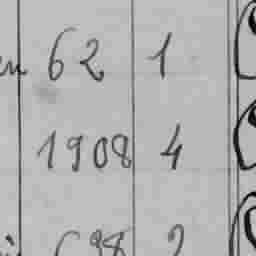 en 62 1
1908 4
698 2